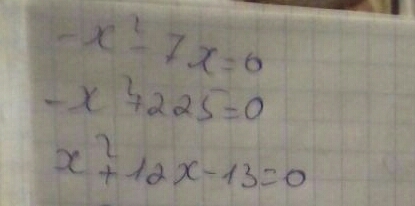 -x² - 7x = 0
-x² + 225 = 0
x² + 12x - 13 = 0